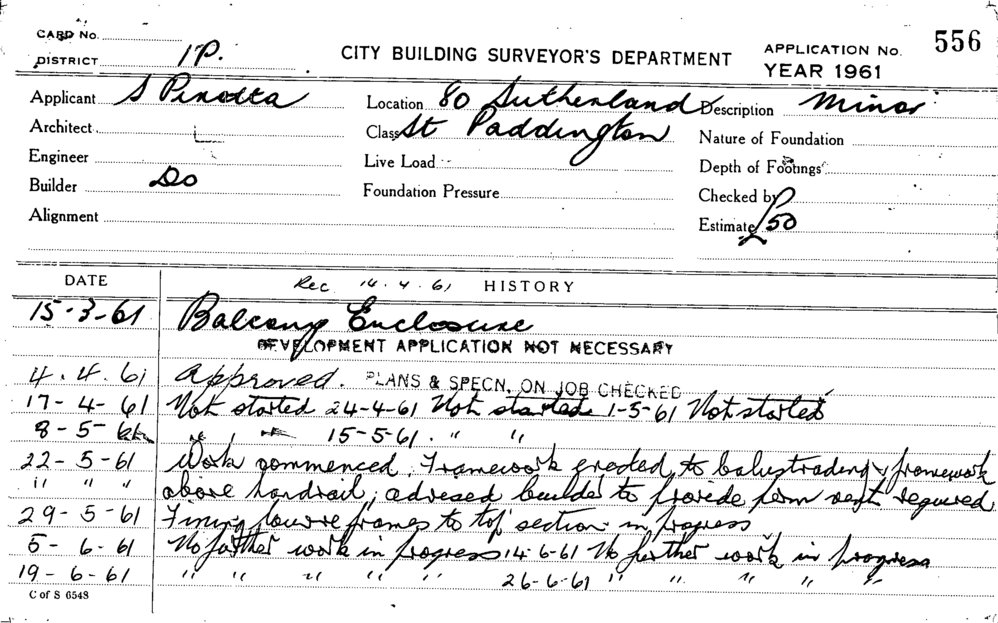 CARD No.
DISTRICT 1P.
CITY BUILDING SURVEYOR'S DEPARTMENT
APPLICATION No. 556
YEAR 1961
Applicant S Pinotta
Location 80 Sutherland
Description Minor
Architect
Class St Paddington
Nature of Foundation
Engineer
Live Load
Depth of Footings
Builder Do
Foundation Pressure
Checked by
Alignment
Estimate £50
DATE Rec. 14.4.61 HISTORY
15-3-61 Balcony Enclosure
DEVELOPMENT APPLICATION NOT NECESSARY
4.4.61 Approved. PLANS & SPECN. ON JOB CHECKED
17-4-61 Not started 24-4-61 Not started 1-5-61 Not started
8-5-61 " " 15-5-61. " "
22-5-61 Work commenced. Framework erected to balustrading & framework
" " " above handrail, advised builder to provide perm vent required
29-5-61 Fixing louvre frames to top section in progress
5-6-61 No further work in progress 14-6-61 No further work in progress
19-6-61 " " " " " 26-6-61 " " " " "
C of S 6548